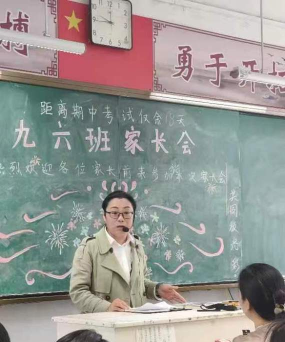 搏
勇于开
距离期中考试仅余 天
九六班家长会
热烈欢迎各位家长前来参加本次家长会